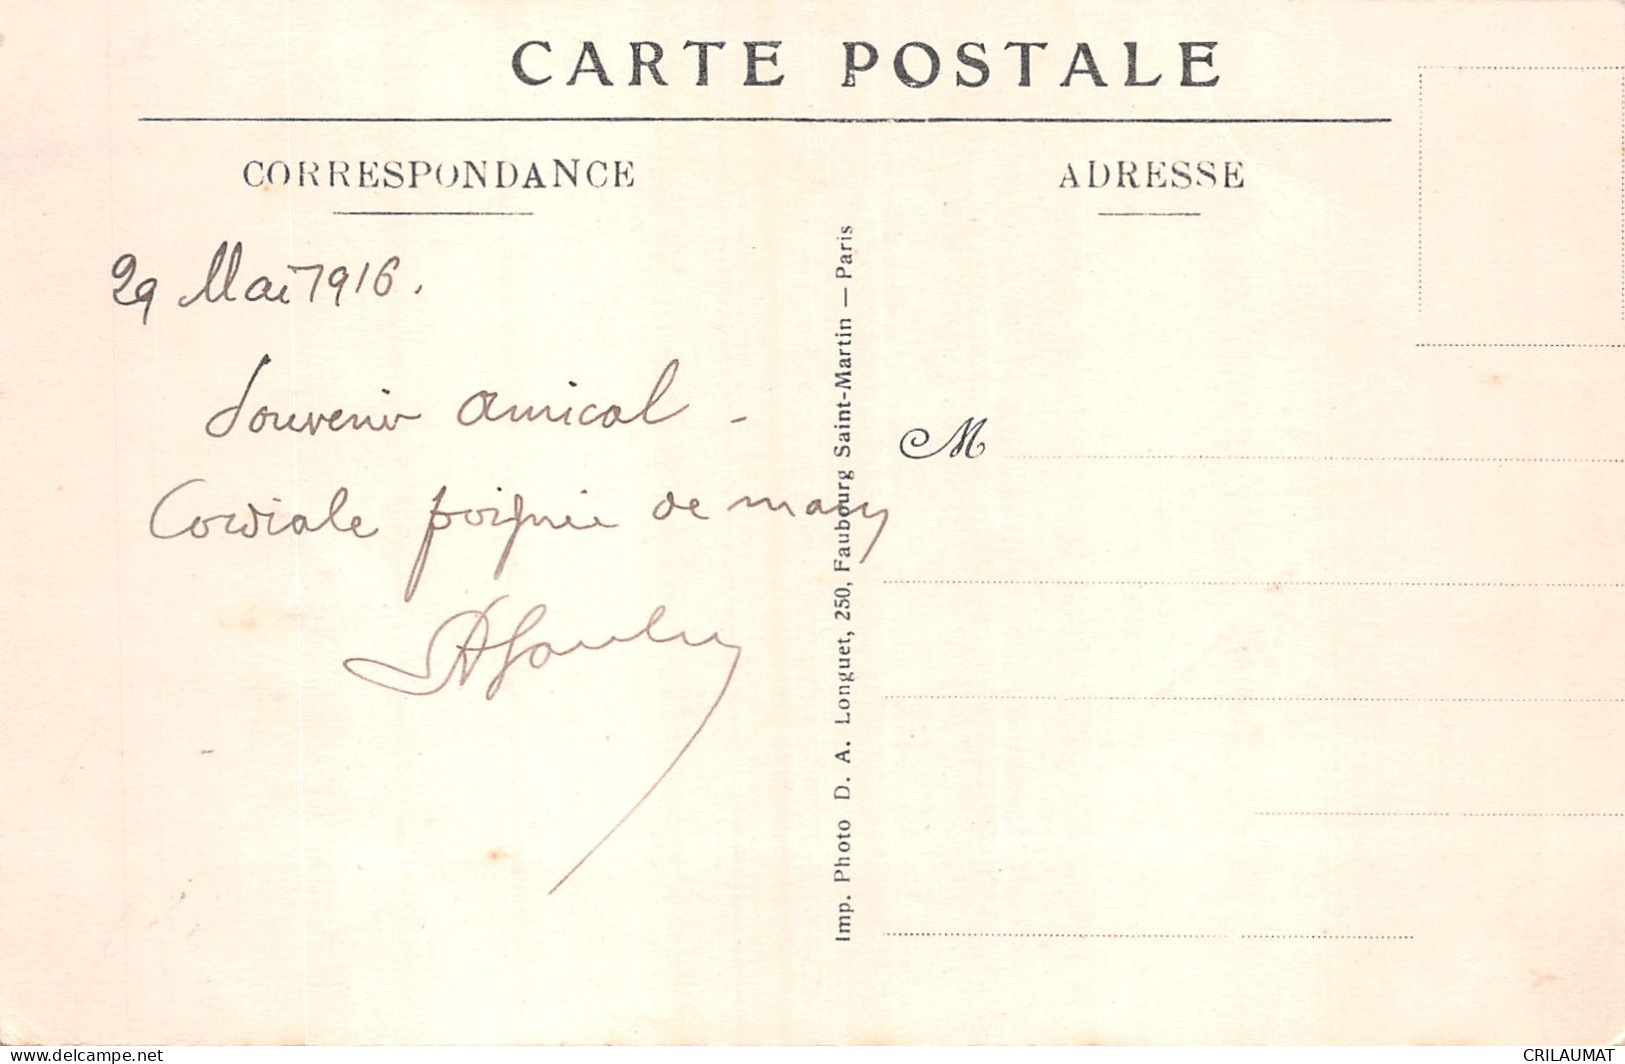 CARTE POSTALE
CORRESPONDANCE
ADRESSE
29 Mai 1916.
Souvenir amical -
Cordiale poignée de main
M
Imp. Photo D. A. Longuet, 250, Faubourg Saint-Martin — Paris
www.delcampe.net
CRILAUMAT